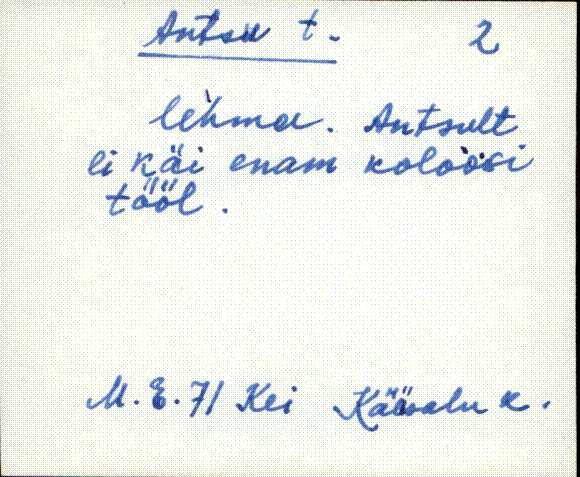 Antsu t. 2
lehma. Antsult
ei käi enam koloosi
tööl.
M. E. 71 Kei Käesalu k.